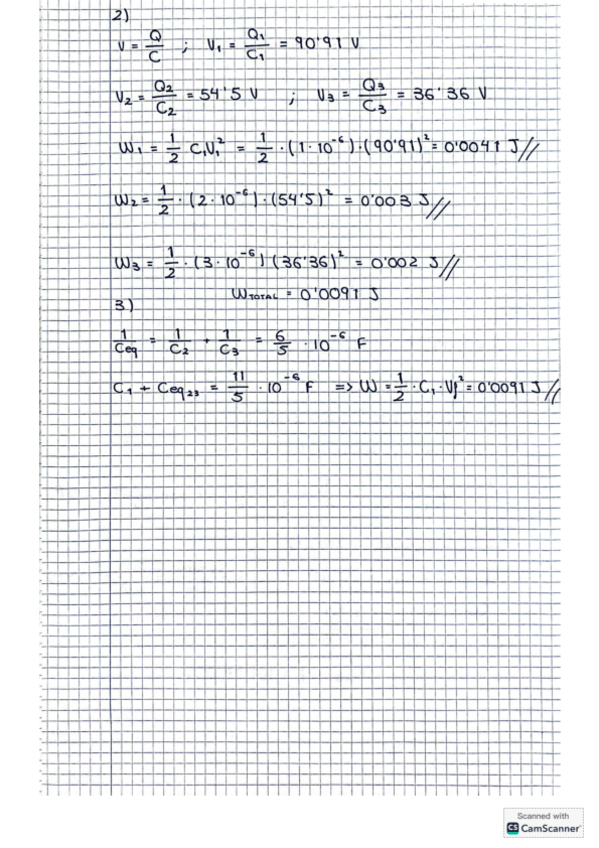 2)
V = Q/C ; V₁ = Q₁/C₁ = 90'91 V
V₂ = Q₂/C₂ = 54'5 V ; V₃ = Q₃/C₃ = 36'36 V
W₁ = 1/2 C₁V₁² = 1/2 · (1·10⁻⁶)·(90'91)² = 0'0041 J//
W₂ = 1/2 · (2·10⁻⁶)·(54'5)² = 0'003 J//
W₃ = 1/2 · (3·10⁻⁶)(36'36)² = 0'002 J//
W_TOTAL = 0'0091 J
3)
1/Ceq = 1/C₂ + 1/C₃ = 6/5 · 10⁻⁶ F
C₁ + Ceq₂₃ = 11/5 · 10⁻⁶ F => W = 1/2 · C₁ · Vf² = 0'0091 J//
Scanned with
CS CamScanner